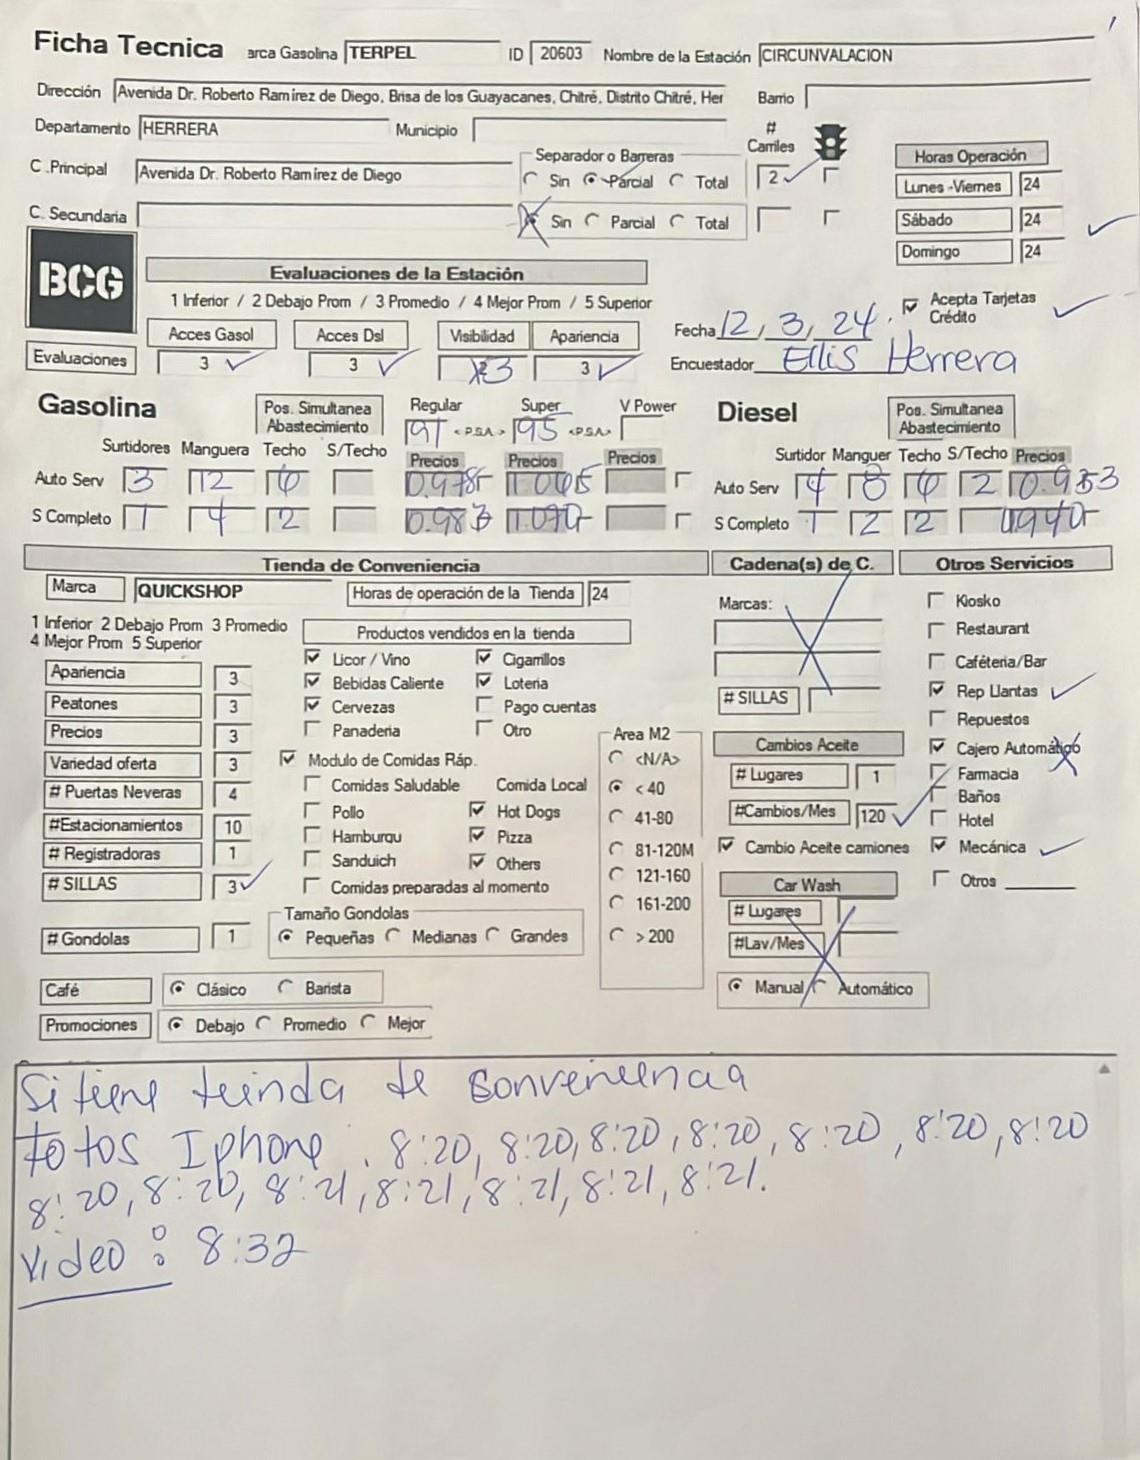 Ficha Tecnica arca Gasolina TERPEL ID 20603 Nombre de la Estación CIRCUNVALACION
Dirección Avenida Dr. Roberto Ramírez de Diego, Brisa de los Guayacanes, Chitré, Distrito Chitré, Her Barrio
Departamento HERRERA Municipio # Carriles
C .Principal Avenida Dr. Roberto Ramírez de Diego
Separador o Barreras
Sin Parcial Total 2
C. Secundaria Sin Parcial Total
Horas Operación
Lunes -Viernes 24
Sábado 24
Domingo 24
BCG
Evaluaciones de la Estación
1 Inferior / 2 Debajo Prom / 3 Promedio / 4 Mejor Prom / 5 Superior
Acces Gasol Acces Dsl Visibilidad Apariencia
Evaluaciones 3 3 3 3
Fecha 12, 3, 24. Acepta Tarjetas Crédito
Encuestador Ellis Herrera
Gasolina Pos. Simultanea Abastecimiento Regular Super V Power
91 <P.S.A> 95 <P.S.A>
Surtidores Manguera Techo S/Techo Precios Precios Precios
Auto Serv 3 12 6
S Completo 1 4 2
Diesel Pos. Simultanea Abastecimiento
Surtidor Manguer Techo S/Techo Precios
Auto Serv 4 8 6 2
S Completo 1 2 2
Tienda de Conveniencia
Marca QUICKSHOP Horas de operación de la Tienda 24
1 Inferior 2 Debajo Prom 3 Promedio
4 Mejor Prom 5 Superior
Apariencia 3
Peatones 3
Precios 3
Variedad oferta 3
# Puertas Neveras 4
#Estacionamientos 10
# Registradoras 1
# SILLAS 3
# Gondolas 1
Productos vendidos en la tienda
Licor / Vino Cigarrillos
Bebidas Caliente Loteria
Cervezas Pago cuentas
Panaderia Otro
Modulo de Comidas Ráp.
Comidas Saludable Comida Local
Pollo Hot Dogs
Hamburqu Pizza
Sanduich Others
Comidas preparadas al momento
Tamaño Gondolas
Pequeñas Medianas Grandes
Area M2
<N/A>
< 40
41-80
81-120M
121-160
161-200
> 200
Café Clásico Barista
Promociones Debajo Promedio Mejor
Cadena(s) de C.
Marcas:
# SILLAS
Cambios Aceite
# Lugares 1
#Cambios/Mes 120
Cambio Aceite camiones
Car Wash
# Lugares
#Lav/Mes
Manual Automático
Otros Servicios
Kiosko
Restaurant
Caféteria/Bar
Rep Llantas
Repuestos
Cajero Automático
Farmacia
Baños
Hotel
Mecánica
Otros
Si tiene teinda de
Fotos Iphone. 8:20, 8:20, 8:20, 8:20, 8:20, 8:20, 8:20
8:20, 8:20, 8:21, 8:21, 8:21, 8:21, 8:21.
Video: 8:32